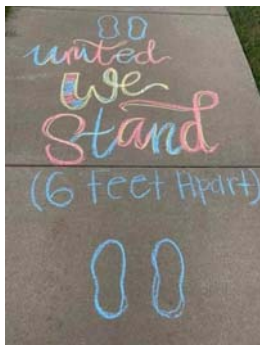 united
we
Stand
(6 feet Apart)